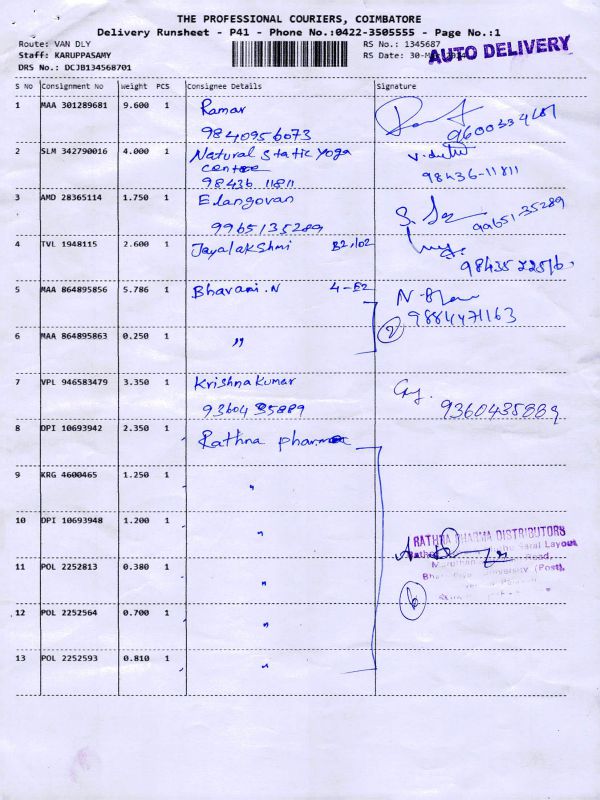 THE PROFESSIONAL COURIERS, COIMBATORE
Delivery Runsheet - P41 - Phone No.:0422-3505555 - Page No.:1
Route: VAN DLY RS No.: 1345687
Staff: KARUPPASAMY RS Date: 30-
DRS No.: DCJB134568701
AUTO DELIVERY
S No Consignment No Weight PCS Consignee Details Signature
1 MAA 301289681 9.600 1 Ramar
9840956073 9600334
2 SLM 342790016 4.000 1 Natural Static Yoga
centre
98436 11811 98436-11811
3 AMD 28365114 1.750 1 Elangovan
9965135289 99651 35289
4 TVL 1948115 2.600 1 Jayalakshmi B2,102
98435
5 MAA 864895856 5.786 1 Bhavani.N 4-E2
9884471163
2
6 MAA 864895863 0.250 1 "
7 VPL 946583479 3.350 1 Krishnakumar
93604 35889 9360435889
8 DPI 10693942 2.350 1 Rathna pharma
9 KRG 4600465 1.250 1 "
10 DPI 10693948 1.200 1 "
RATHNA PHARMA DISTRIBUTORS
Layout,
Road,
(Post),
11 POL 2252813 0.380 1 "
6
12 POL 2252564 0.700 1 "
13 POL 2252593 0.810 1 "